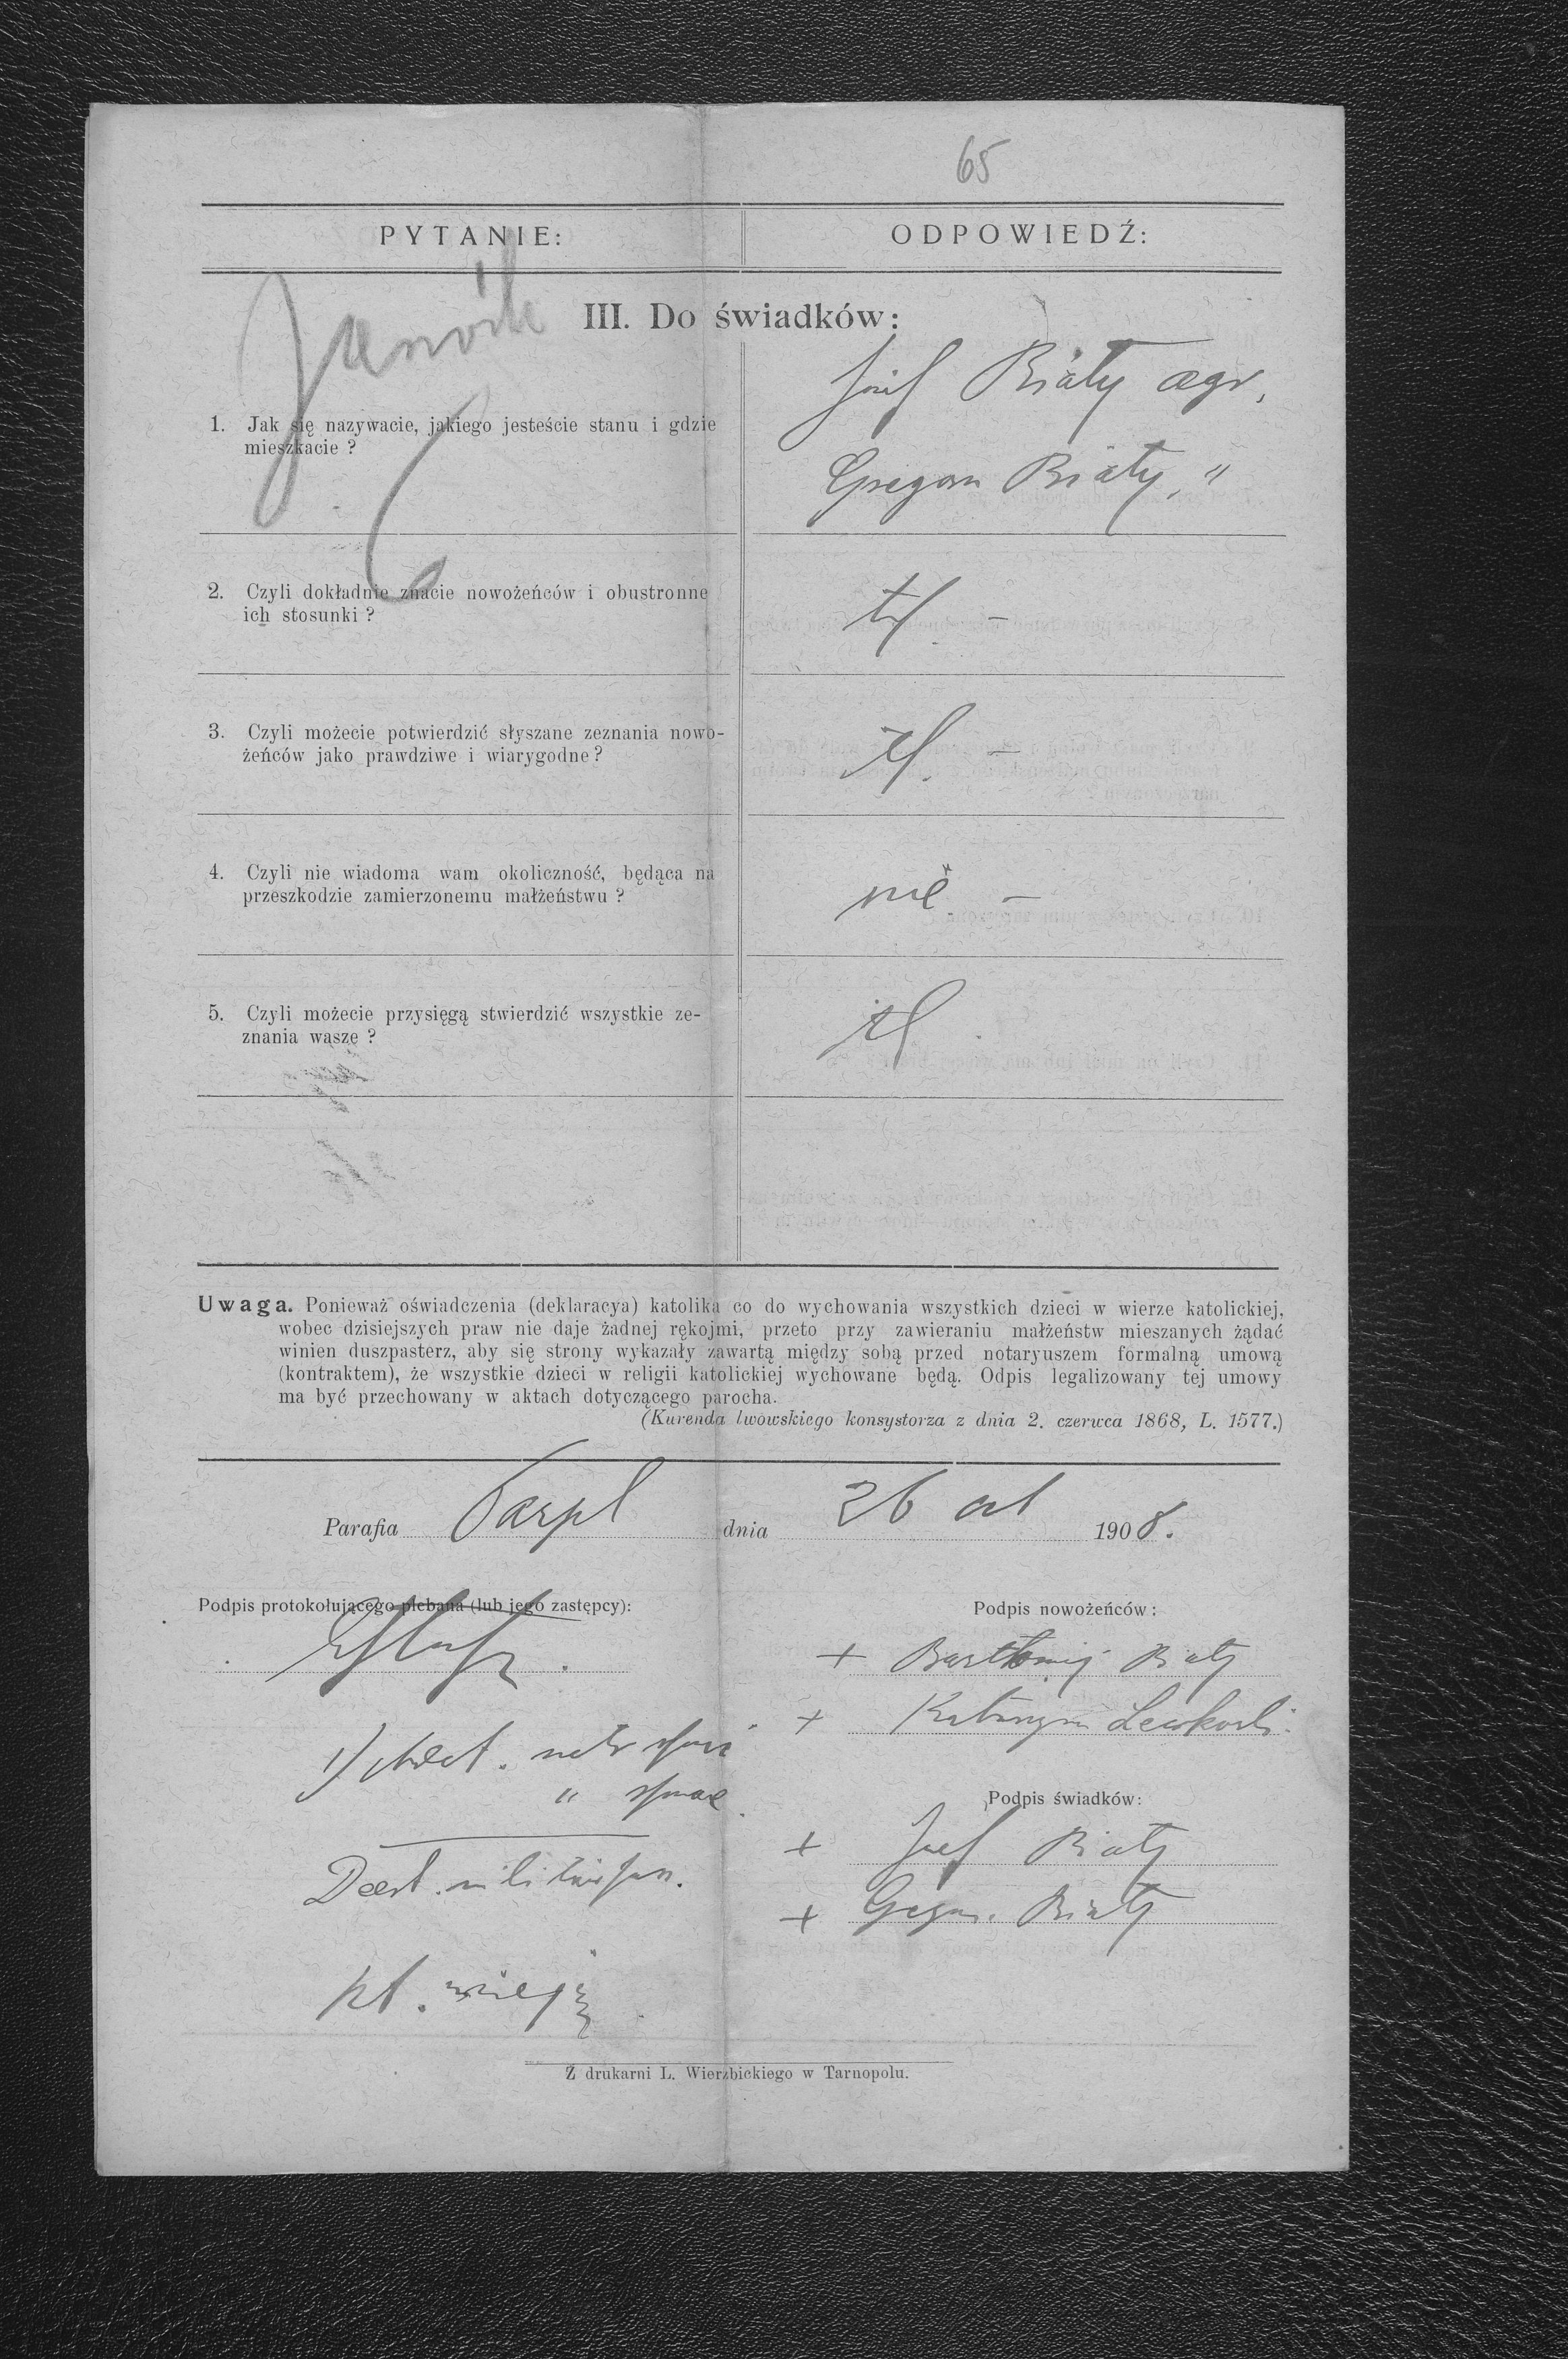 65
PYTANIE:
ODPOWIEDŹ:
III. Do świadków:
1. Jak się nazywacie, jakiego jesteście stanu i gdzie
mieszkacie ?
Józef Biały agr,
Gregorz Biały, "
2. Czyli dokładnie znacie nowożeńców i obustronne
ich stosunki ?
3. Czyli możecie potwierdzić słyszane zeznania nowo-
żeńców jako prawdziwe i wiarygodne ?
4. Czyli nie wiadoma wam okoliczność, będąca na
przeszkodzie zamierzonemu małżeństwu ?
nie –
5. Czyli możecie przysięgą stwierdzić wszystkie ze-
znania wasze ?
Uwaga. Ponieważ oświadczenia (deklaracya) katolika co do wychowania wszystkich dzieci w wierze katolickiej,
wobec dzisiejszych praw nie daje żadnej rękojmi, przeto przy zawieraniu małżeństw mieszanych żądać
winien duszpasterz, aby się strony wykazały zawartą między sobą przed notaryuszem formalną umową
(kontraktem), że wszystkie dzieci w religii katolickiej wychowane będą. Odpis legalizowany tej umowy
ma być przechowany w aktach dotyczącego parocha.
(Kurenda lwowskiego konsystorza z dnia 2. czerwca 1868, L. 1577.)
Parafia Tarpl dnia 26 oct 1908.
Podpis protokołującego plebana (lub jego zastępcy):
Podpis nowożeńców :
+ Bartłomij Biały
+ Katarzyna
Podpis świadków:
+ Józef Biały
+ Gregor. Biały
Z drukarni L. Wierzbickiego w Tarnopolu.